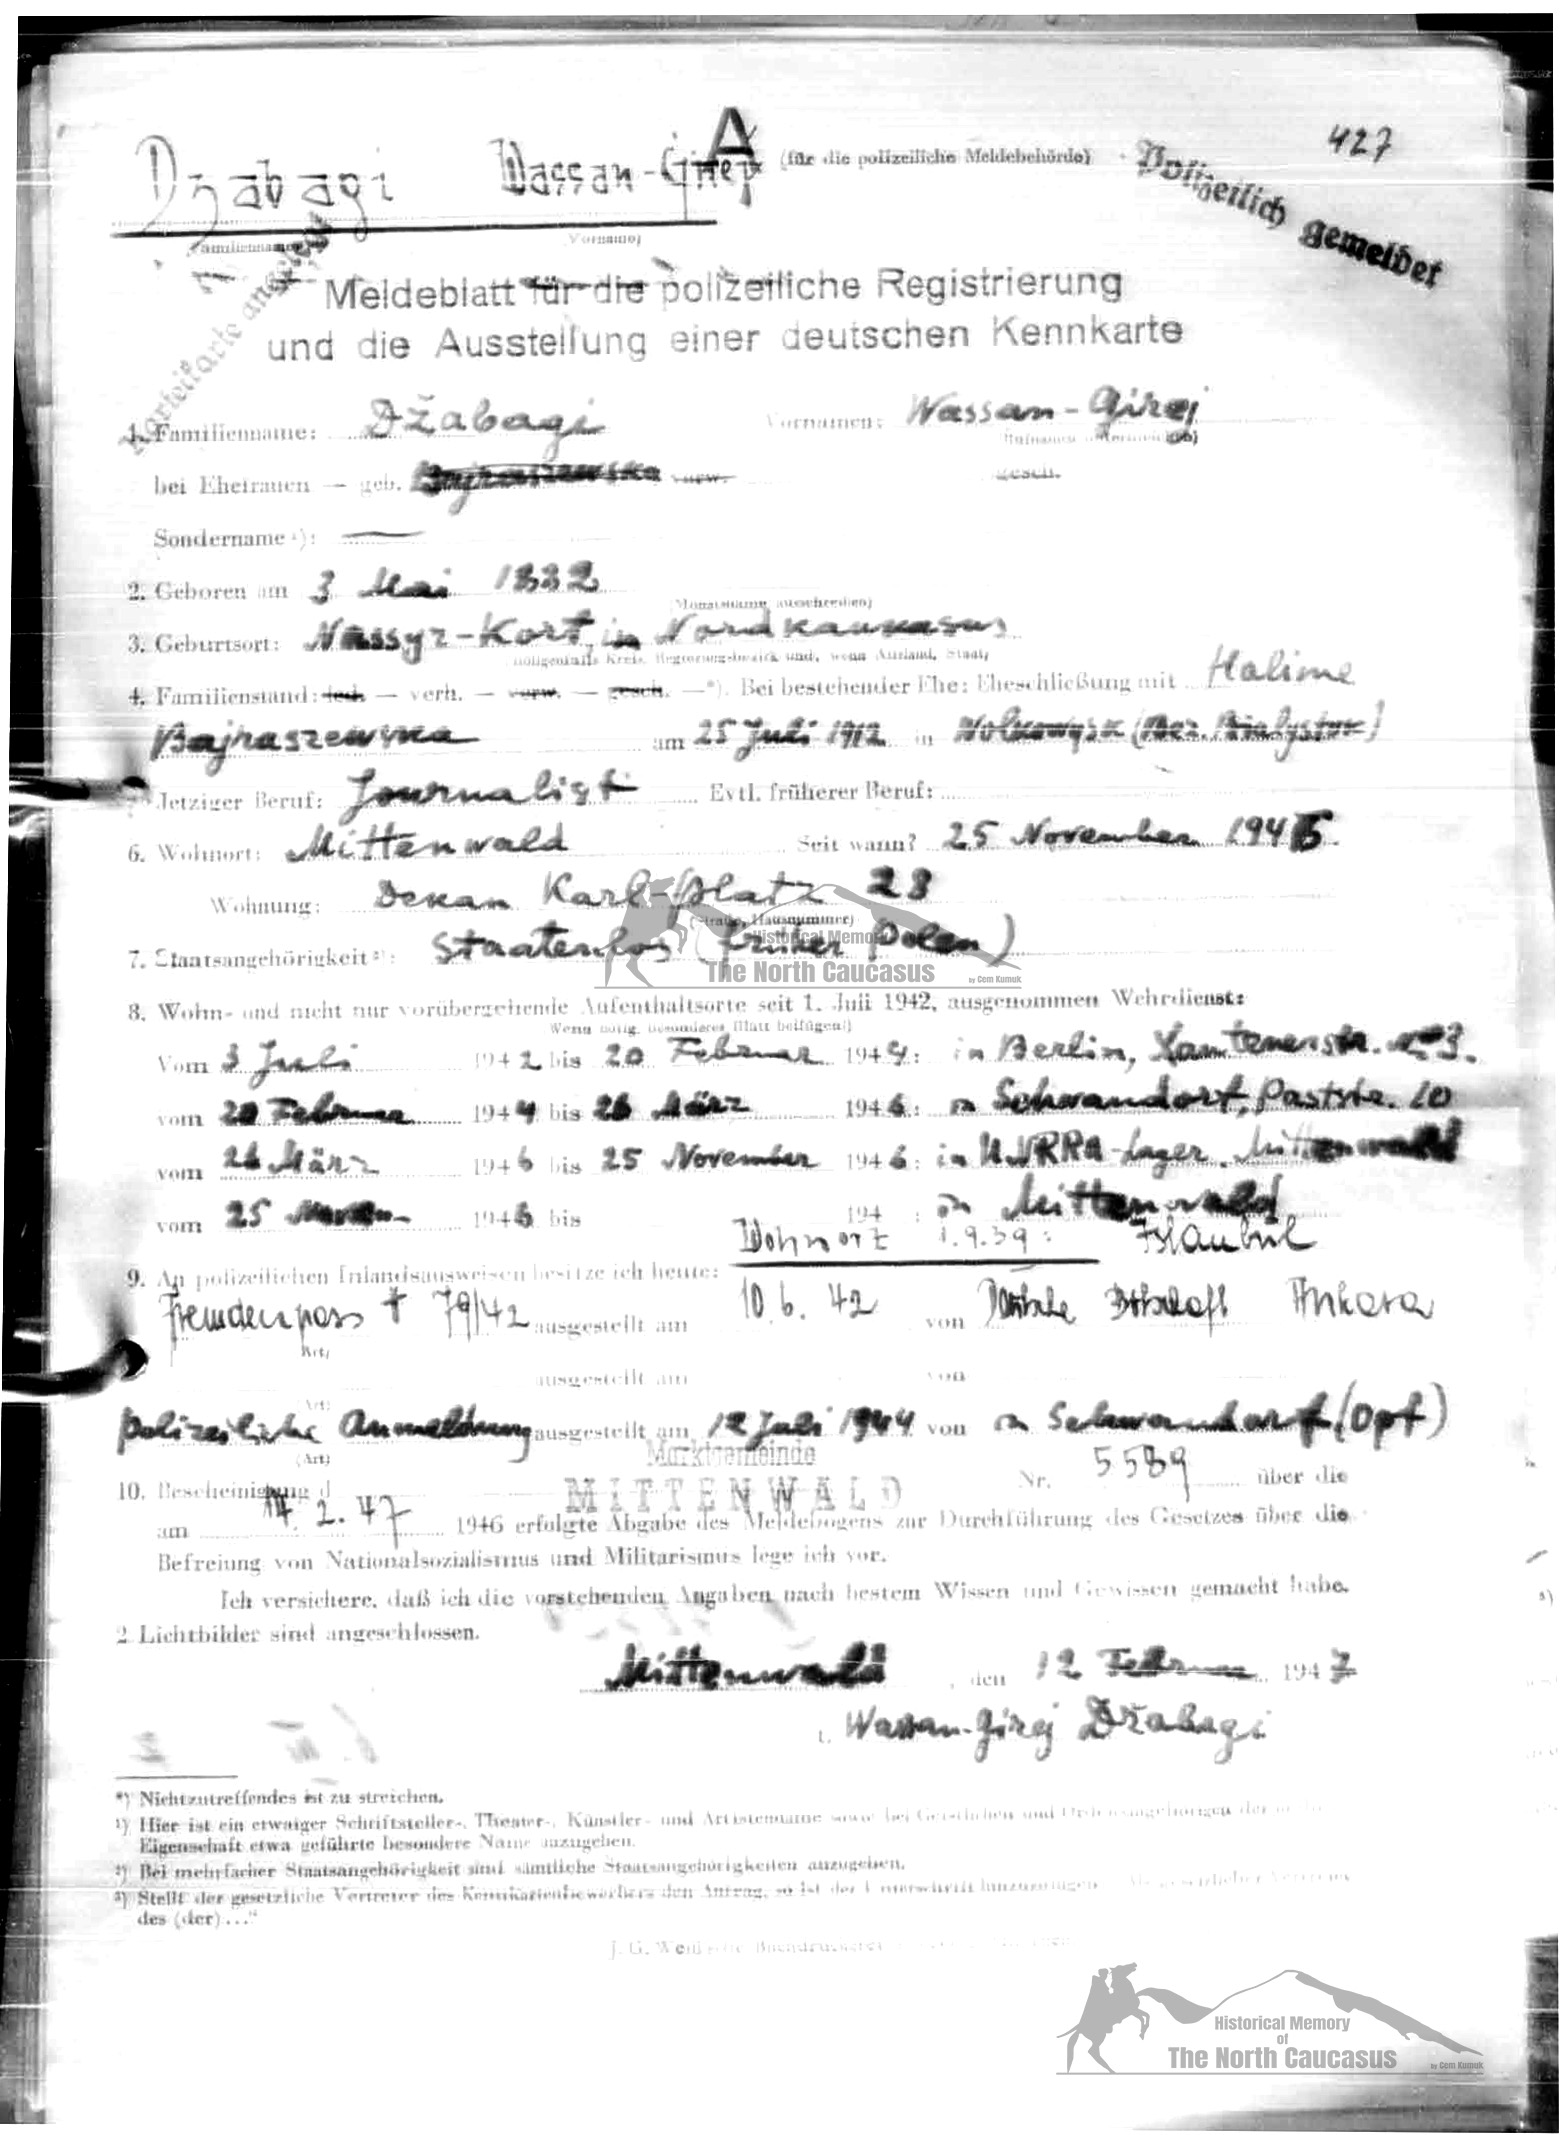 427
A
Dzabagi Wassan-Girej (für die polizeiliche Meldebehörde)
Polizeilich gemeldet
(Familienname) (Vorname)
Karteikarte angelegt
Meldeblatt für die polizeiliche Registrierung
und die Ausstellung einer deutschen Kennkarte
1. Familienname: Džabagi Vornamen: Wassan-Girej
bei Ehefrauen — geb. Bajraszewska verw. gesch.
Sondername ¹): —
2. Geboren am 3 Mai 1882
(Monatsname ausschreiben)
3. Geburtsort: Nassyr-Kort, in Nordkaukasus
(nötigenfalls Kreis, Regierungsbezirk und, wenn Ausland, Staat)
4. Familienstand: led. — verh. — verw. — gesch. —*). Bei bestehender Ehe: Eheschließung mit Halime
Bajraszewska am 25 Juli 1912 in Wolkowysk (Bez. Bialystok)
Jetziger Beruf: Journalist Evtl. früherer Beruf:
6. Wohnort: Mittenwald Seit wann? 25 November 1946.
Wohnung: Dekan Karl-platz 28
(Straße, Hausnummer)
7. Staatsangehörigkeit ²): Staatenlos (früher Polen)
Historical Memory
The North Caucasus by Cem Kumuk
8. Wohn- und nicht nur vorübergehende Aufenthaltsorte seit 1. Juli 1942, ausgenommen Wehrdienst:
(Wenn nötig, besonderes Blatt beifügen!)
Vom 3 Juli 1942 bis 20 Februar 1944: in Berlin, Xantenerstr. 3.
vom 20 Februar 1944 bis 26 März 1946: in Schwandorf, 10
vom 26 März 1946 bis 25 November 1946: in UNRRA-Lager, Mittenwald
vom 25 Novem- 1946 bis 194 : in Mittenwald
Wohnort 1.9.39: Istanbul
9. An polizeilichen Inlandsausweisen besitze ich heute:
Fremdenpass 79/42 ausgestellt am 10.6.42 von Deutsche Botschaft Ankara
(Art)
ausgestellt am von
(Art)
polizeiliche Anmeldung ausgestellt am 12 Juli 1944 von in Schwandorf (Opf)
(Art)
Marktgemeinde
10. Bescheinigung d MITTENWALD Nr. 5589 über die
am 14.2.47 1946 erfolgte Abgabe des Meldebogens zur Durchführung des Gesetzes über die
Befreiung von Nationalsozialismus und Militarismus lege ich vor.
Ich versichere, daß ich die vorstehenden Angaben nach bestem Wissen und Gewissen gemacht habe.
2 Lichtbilder sind angeschlossen.
Mittenwald, den 12 Februar 1947
Wassan-Girej Džabagi
*) Nichtzutreffendes ist zu streichen.
¹) Hier ist ein etwaiger Schriftsteller-, Theater-, Künstler- und Artistenname sowie bei Geistlichen und Ordensangehörigen der in
Eigenschaft etwa geführte besondere Name anzugeben.
²) Bei mehrfacher Staatsangehörigkeit sind sämtliche Staatsangehörigkeiten anzugeben.
³) Stellt der gesetzliche Vertreter des Kennkartenbewerbers den Antrag, so ist der Unterschrift hinzuzufügen „Als gesetzlicher Vertreter
des (der) ...“
J. G. Buchdruckerei
Historical Memory
of
The North Caucasus by Cem Kumuk